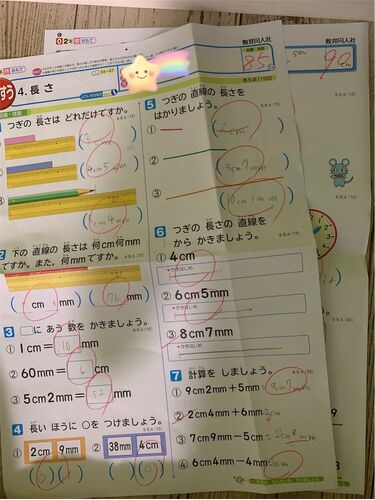 2年
教育同人社
4. 長さ
85
90
1 つぎの 長さは どれだけですか。
4cm5mm
2 下の 直線の 長さは 何cm何mm
ですか。また, 何mmですか。
cm mm
76 mm
3 □に あう 数を かきましょう。
① 1cm=10mm
② 60mm=6cm
③ 5cm2mm=52mm
4 長い ほうに ○を つけましょう。
① 2cm 9mm
② 38mm 4cm
5 つぎの 直線の 長さを
はかりましょう。
① 2cm
② 5cm7mm
③
6 つぎの 長さの 直線を
から かきましょう。
① 4cm
かきはじめ
② 6cm5mm
かきはじめ
③ 8cm7mm
かきはじめ
7 計算を しましょう。
① 9cm2mm+5mm=9cm7mm
② 2cm4mm+6mm
③ 7cm9mm-5cm=2cm9mm
④ 6cm4mm-4mm=6cm